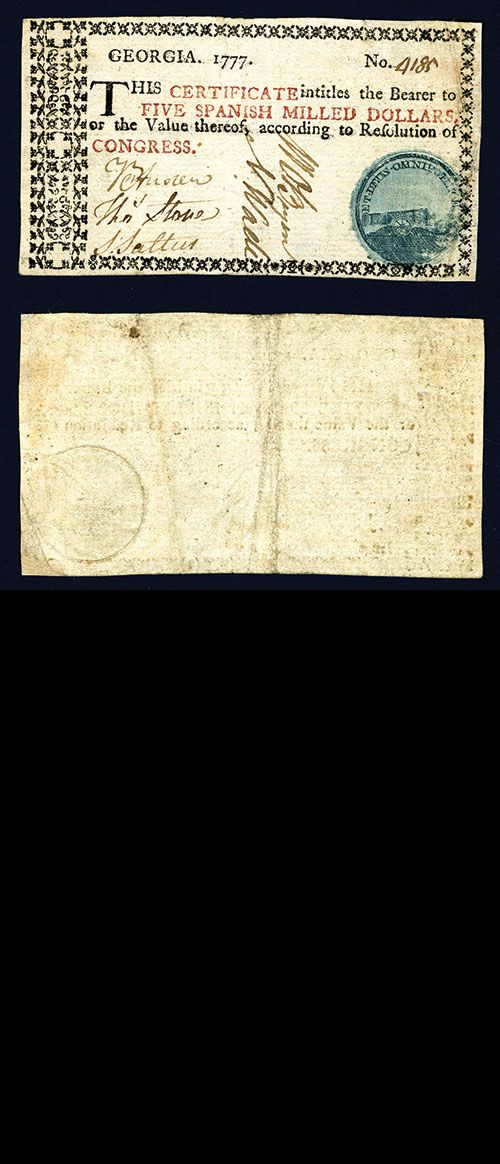 GEORGIA. 1777. No. 4185
THIS CERTIFICATE intitles the Bearer to
FIVE SPANISH MILLED DOLLARS,
or the Value thereof, according to Resolution of
CONGRESS.
Thos Stone
S. Saltus
ET DEUS OMNIPOTENS